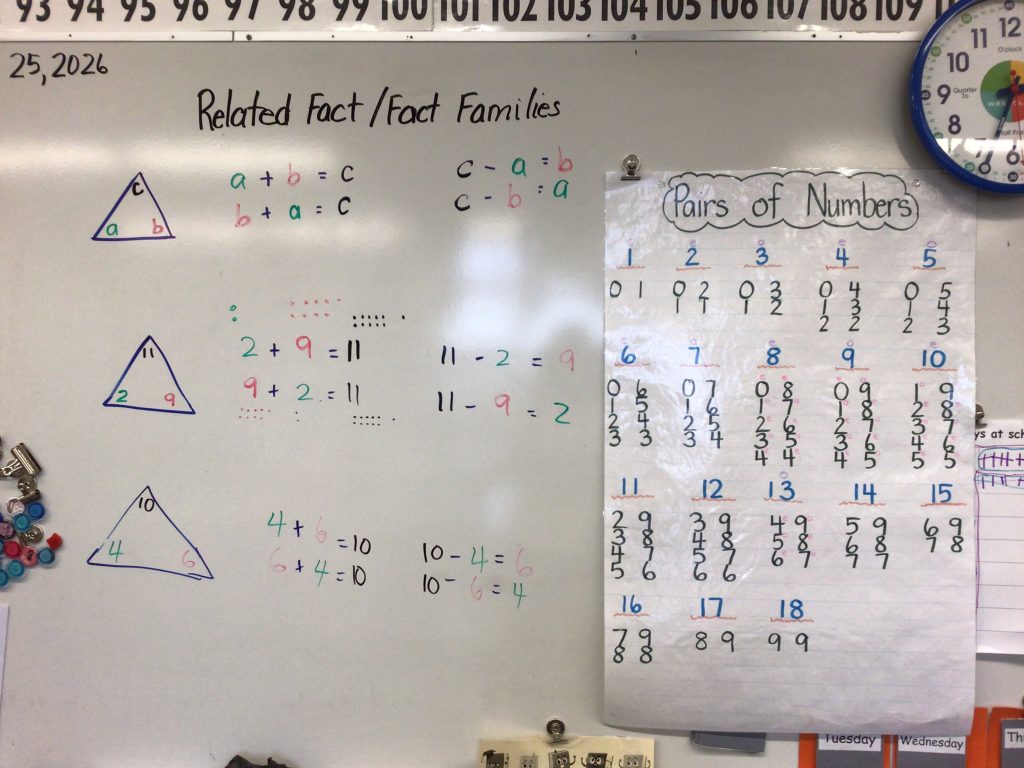 93 94 95 96 97 98 99 100 101 102 103 104 105 106 107 108 109
25, 2026
Related Fact / Fact Families
c
a b
a + b = c
b + a = c
c - a = b
c - b = a
11
2 9
2 + 9 = 11
9 + 2 = 11
11 - 2 = 9
11 - 9 = 2
10
4 6
4 + 6 = 10
6 + 4 = 10
10 - 4 = 6
10 - 6 = 4
Pairs of Numbers
1 2 3 4 5
0 1 0 2 0 3 0 4 0 5
1 1 1 2 1 3 1 4
2 2 2 3
6 7 8 9 10
0 6 0 7 0 8 0 9 1 9
1 5 1 6 1 7 1 8 2 8
2 4 2 5 2 6 2 7 3 7
3 3 3 4 3 5 3 6 4 6
4 4 4 5 5 5
11 12 13 14 15
2 9 3 9 4 9 5 9 6 9
3 8 4 8 5 8 6 8 7 8
4 7 5 7 6 7 7 7
5 6 6 6
16 17 18
7 9 8 9 9 9
8 8
12
11
O'clock
10
9
Quarter
To
8
7
6
ys at sch
Tuesday
Wednesday
Th